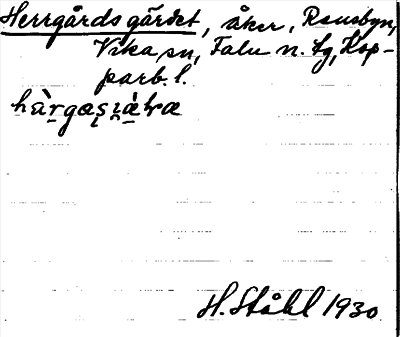 Herrgårdsgärdet, åker, Rensbyn,
Vika sn, Falu n. tg, Kop-
parb. l.
H. Ståhl 1930